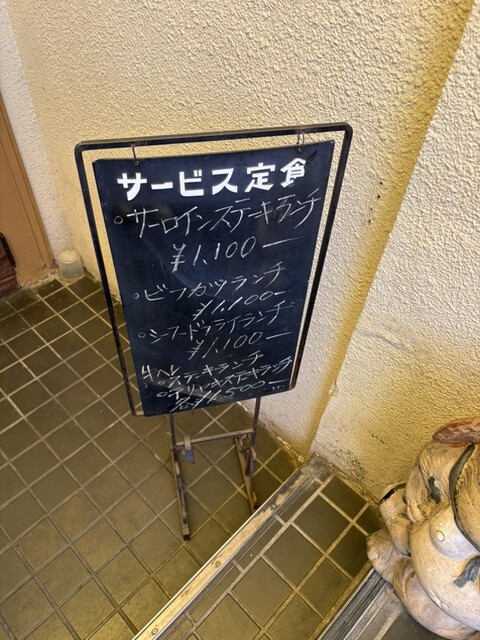 サービス定食
○サーロインステーキランチ
¥1,100ー
○ビーフカツランチ
¥1,100ー
○シーフードフライランチ
¥1,100ー
牛ヘレ
ステーキランチ
テリヤキステーキランチ
¥1,500ー